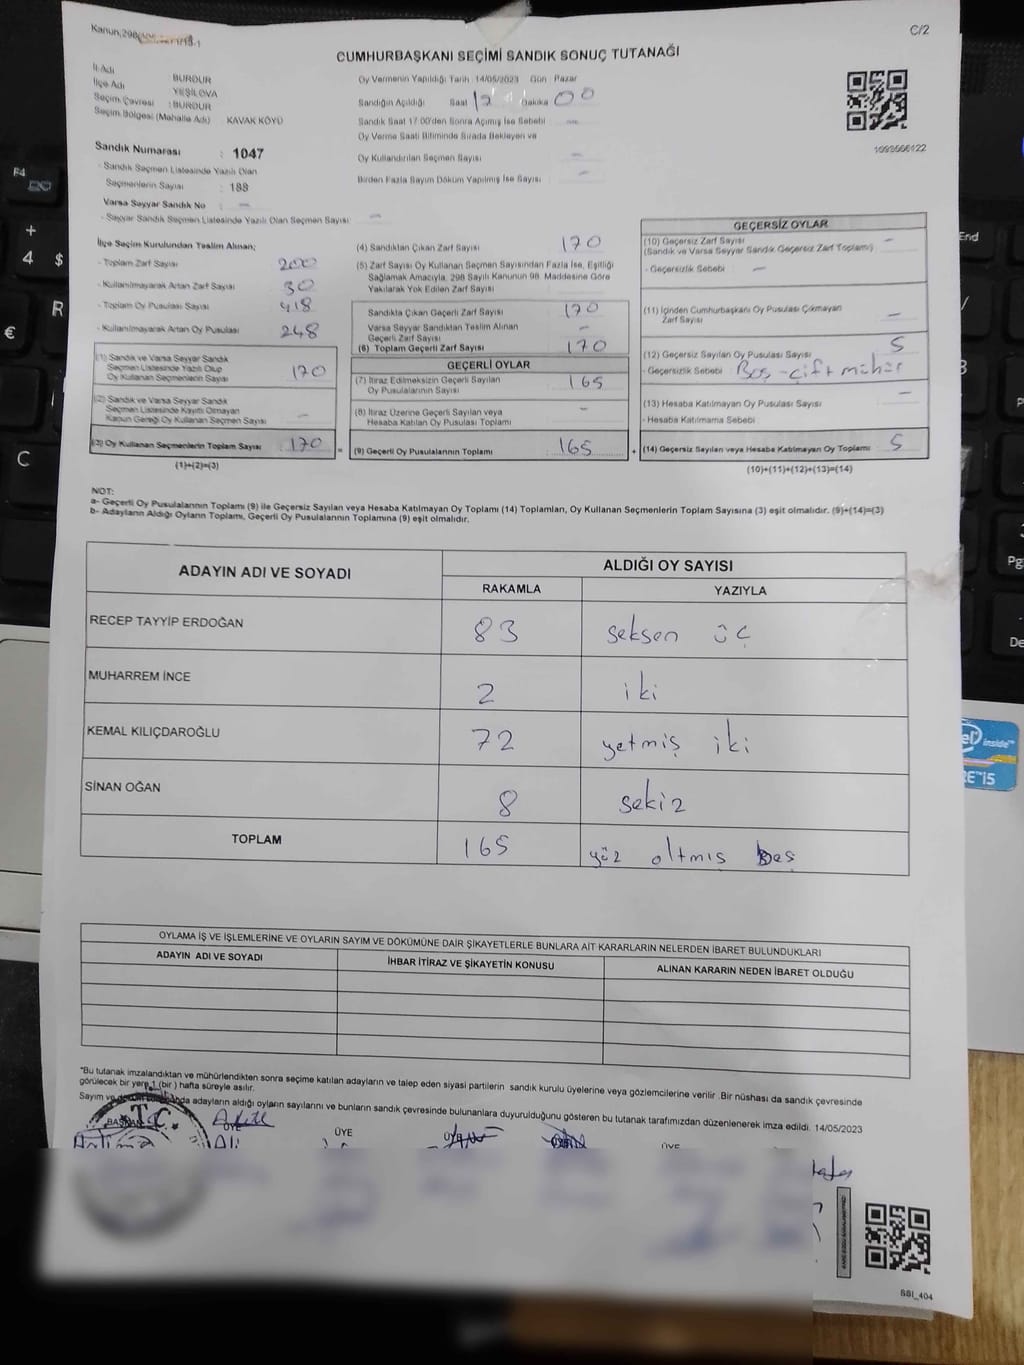 C/2
CUMHURBAŞKANI SEÇİMİ SANDIK SONUÇ TUTANAĞI
İl Adı
BURDUR
İlçe Adı
YEŞİLOVA
Seçim Çevresi : BURDUR
Seçim Bölgesi (Mahalle Adı) KAVAK KÖYÜ
Sandık Numarası : 1047
- Sandık Seçmen Listesinde Yazılı Olan
Seçmenlerin Sayısı : 188
Varsa Seyyar Sandık No : -
- Seyyar Sandık Seçmen Listesinde Yazılı Olan Seçmen Sayısı: -
Oy Vermenin Yapıldığı Tarih 14/05/2023 Gün Pazar
Sandığın Açıldığı Saat 17 Dakika 00
Sandık Saat 17:00'den Sonra Açılmış İse Sebebi -
Oy Verme Saati Bitiminde Sırada Bekleyen ve
Oy Kullandırılan Seçmen Sayısı -
Birden Fazla Sayım Döküm Yapılmış İse Sayısı -
1093566122
İlçe Seçim Kurulundan Teslim Alınan;
- Toplam Zarf Sayısı 200
- Kullanılmayarak Artan Zarf Sayısı 30
- Toplam Oy Pusulası Sayısı 418
- Kullanılmayarak Artan Oy Pusulası 248
(1) Sandık ve Varsa Seyyar Sandık
Seçmen Listesinde Yazılı Olup
Oy Kullanan Seçmenlerin Sayısı 170
(2) Sandık ve Varsa Seyyar Sandık
Seçmen Listesinde Kayıtlı Olmayan
Kanun Gereği Oy Kullanan Seçmen Sayısı -
(3) Oy Kullanan Seçmenlerin Toplam Sayısı : 170
(1)+(2)=(3)
(4) Sandıktan Çıkan Zarf Sayısı 170
(5) Zarf Sayısı Oy Kullanan Seçmen Sayısından Fazla İse, Eşitliği
Sağlamak Amacıyla, 298 Sayılı Kanunun 98. Maddesine Göre
Yakılarak Yok Edilen Zarf Sayısı
Sandıkta Çıkan Geçerli Zarf Sayısı 170
Varsa Seyyar Sandıktan Teslim Alınan
Geçerli Zarf Sayısı -
(6) Toplam Geçerli Zarf Sayısı 170
GEÇERLİ OYLAR
(7) İtiraz Edilmeksizin Geçerli Sayılan
Oy Pusulalarının Sayısı 165
(8) İtiraz Üzerine Geçerli Sayılan veya
Hesaba Katılan Oy Pusulası Toplamı -
= (9) Geçerli Oy Pusulalarının Toplamı : 165
GEÇERSİZ OYLAR
(10) Geçersiz Zarf Sayısı -
(Sandık ve Varsa Seyyar Sandık Geçersiz Zarf Toplamı)
- Geçersizlik Sebebi -
(11) İçinden Cumhurbaşkanı Oy Pusulası Çıkmayan
Zarf Sayısı -
(12) Geçersiz Sayılan Oy Pusulası Sayısı 5
- Geçersizlik Sebebi : Boş - çift mühür
(13) Hesaba Katılmayan Oy Pusulası Sayısı -
- Hesaba Katılmama Sebebi
+ (14) Geçersiz Sayılan veya Hesaba Katılmayan Oy Toplamı : 5
(10)+(11)+(12)+(13)=(14)
NOT:
a- Geçerli Oy Pusulalarının Toplamı (9) ile Geçersiz Sayılan veya Hesaba Katılmayan Oy Toplamı (14) Toplamları, Oy Kullanan Seçmenlerin Toplam Sayısına (3) eşit olmalıdır. (9)+(14)=(3)
b- Adayların Aldığı Oyların Toplamı, Geçerli Oy Pusulalarının Toplamına (9) eşit olmalıdır.
ADAYIN ADI VE SOYADI
ALDIĞI OY SAYISI
RAKAMLA YAZIYLA
RECEP TAYYİP ERDOĞAN 83 seksen üç
MUHARREM İNCE 2 iki
KEMAL KILIÇDAROĞLU 72 yetmiş iki
SİNAN OĞAN 8 sekiz
TOPLAM 165 yüz altmış beş
OYLAMA İŞ VE İŞLEMLERİNE VE OYLARIN SAYIM VE DÖKÜMÜNE DAİR ŞİKAYETLERLE BUNLARA AİT KARARLARIN NELERDEN İBARET BULUNDUKLARI
ADAYIN ADI VE SOYADI İHBAR İTİRAZ VE ŞİKAYETİN KONUSU ALINAN KARARIN NEDEN İBARET OLDUĞU
"Bu tutanak imzalandıktan ve mühürlendikten sonra seçime katılan adayların ve talep eden siyasi partilerin sandık kurulu üyelerine veya gözlemcilerine verilir .Bir nüshası da sandık çevresinde
görülecek bir yere 1 (bir ) hafta süreyle asılır.
Sayım ve adayların aldığı oyların sayılarını ve bunların sandık çevresinde bulunanlara duyurulduğunu gösteren bu tutanak tarafımızdan düzenlenerek imza edildi. 14/05/2023
T.C.
BAŞKAN ÜYE ÜYE
Ali
SSI_404
F4
+
4 $
R
€
C
End
intel inside™
CORE™ i5